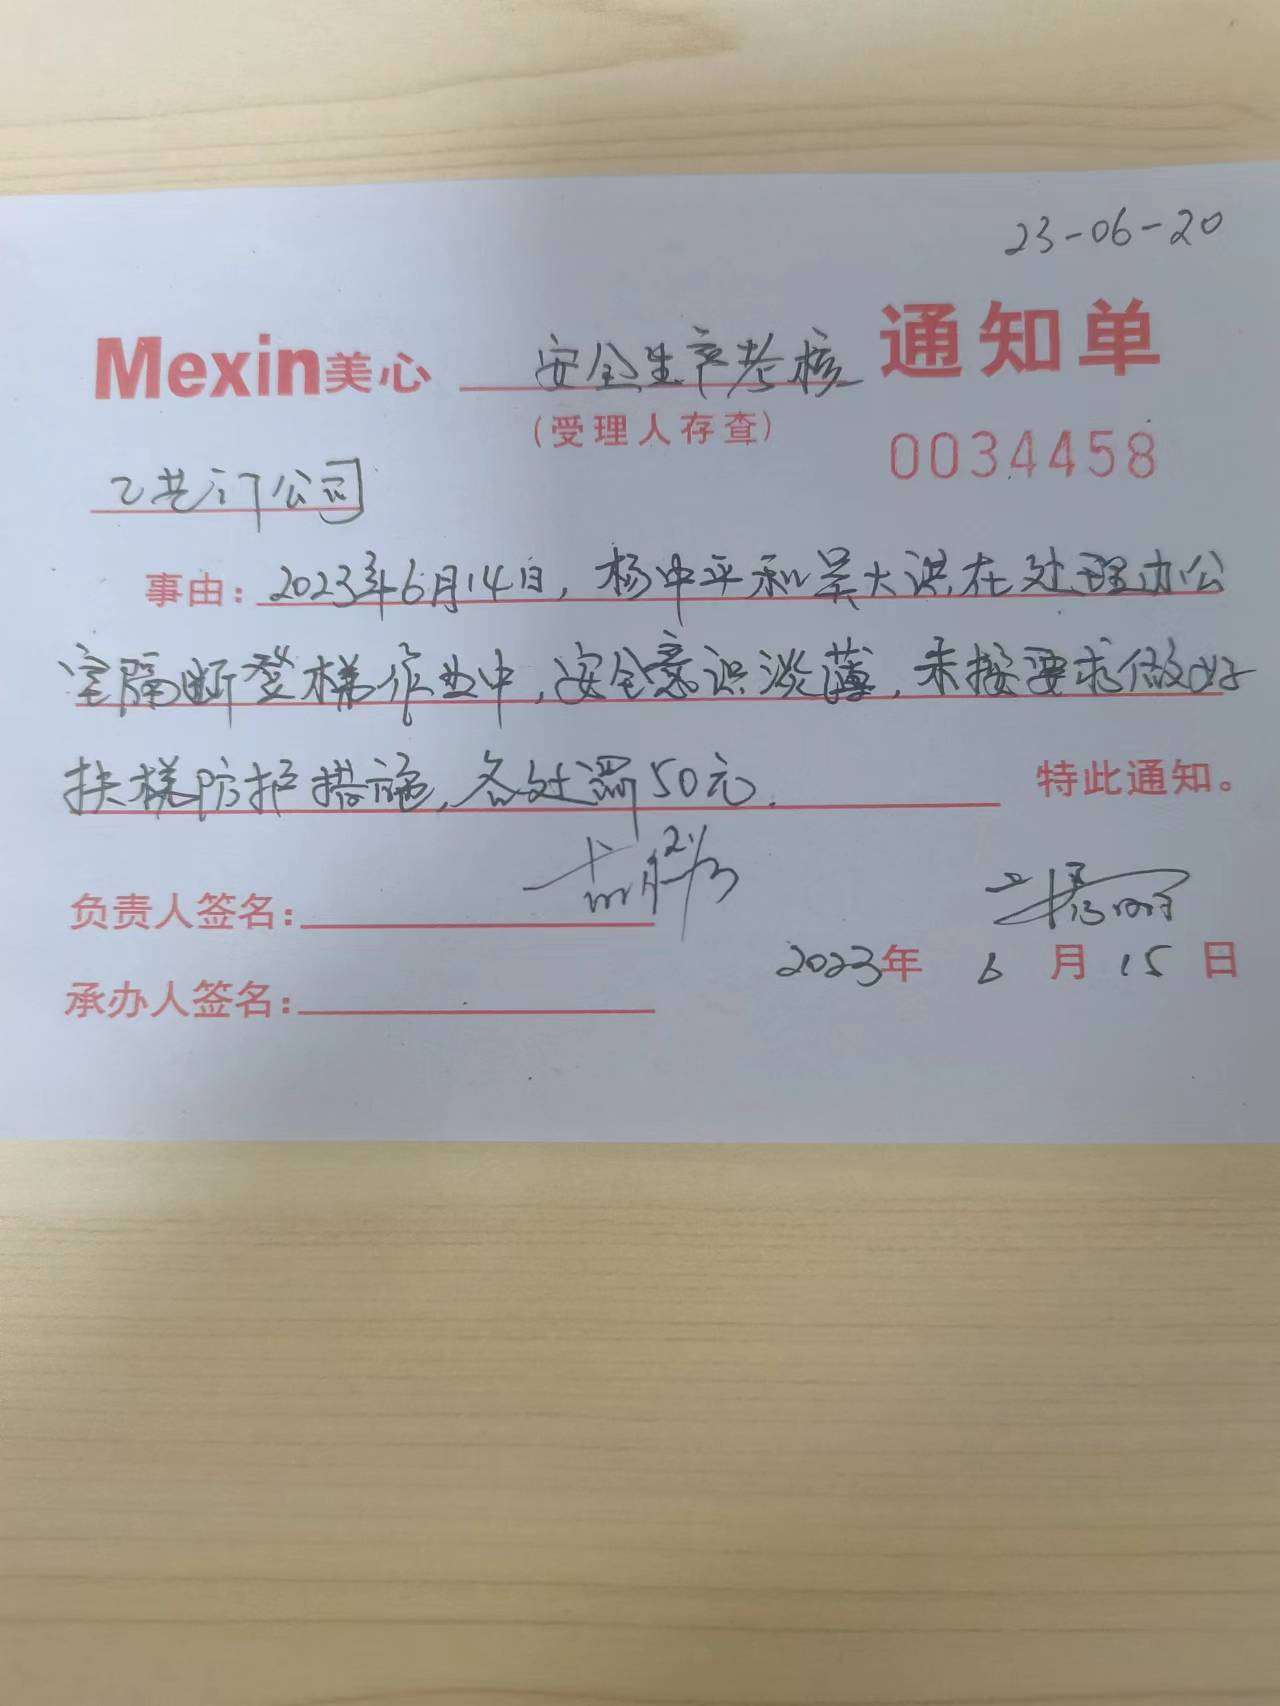 23-06-20
Mexin美心 安全生产考核 通知单
(受理人存查)
0034458
工艺门公司
事由: 2023年6月14日,杨中平和吴大洪在处理办公
室隔断登梯作业中,安全意识淡薄,未按要求做好
扶梯防护措施,各处罚50元. 特此通知。
负责人签名:
2023年 6 月 15 日
承办人签名: